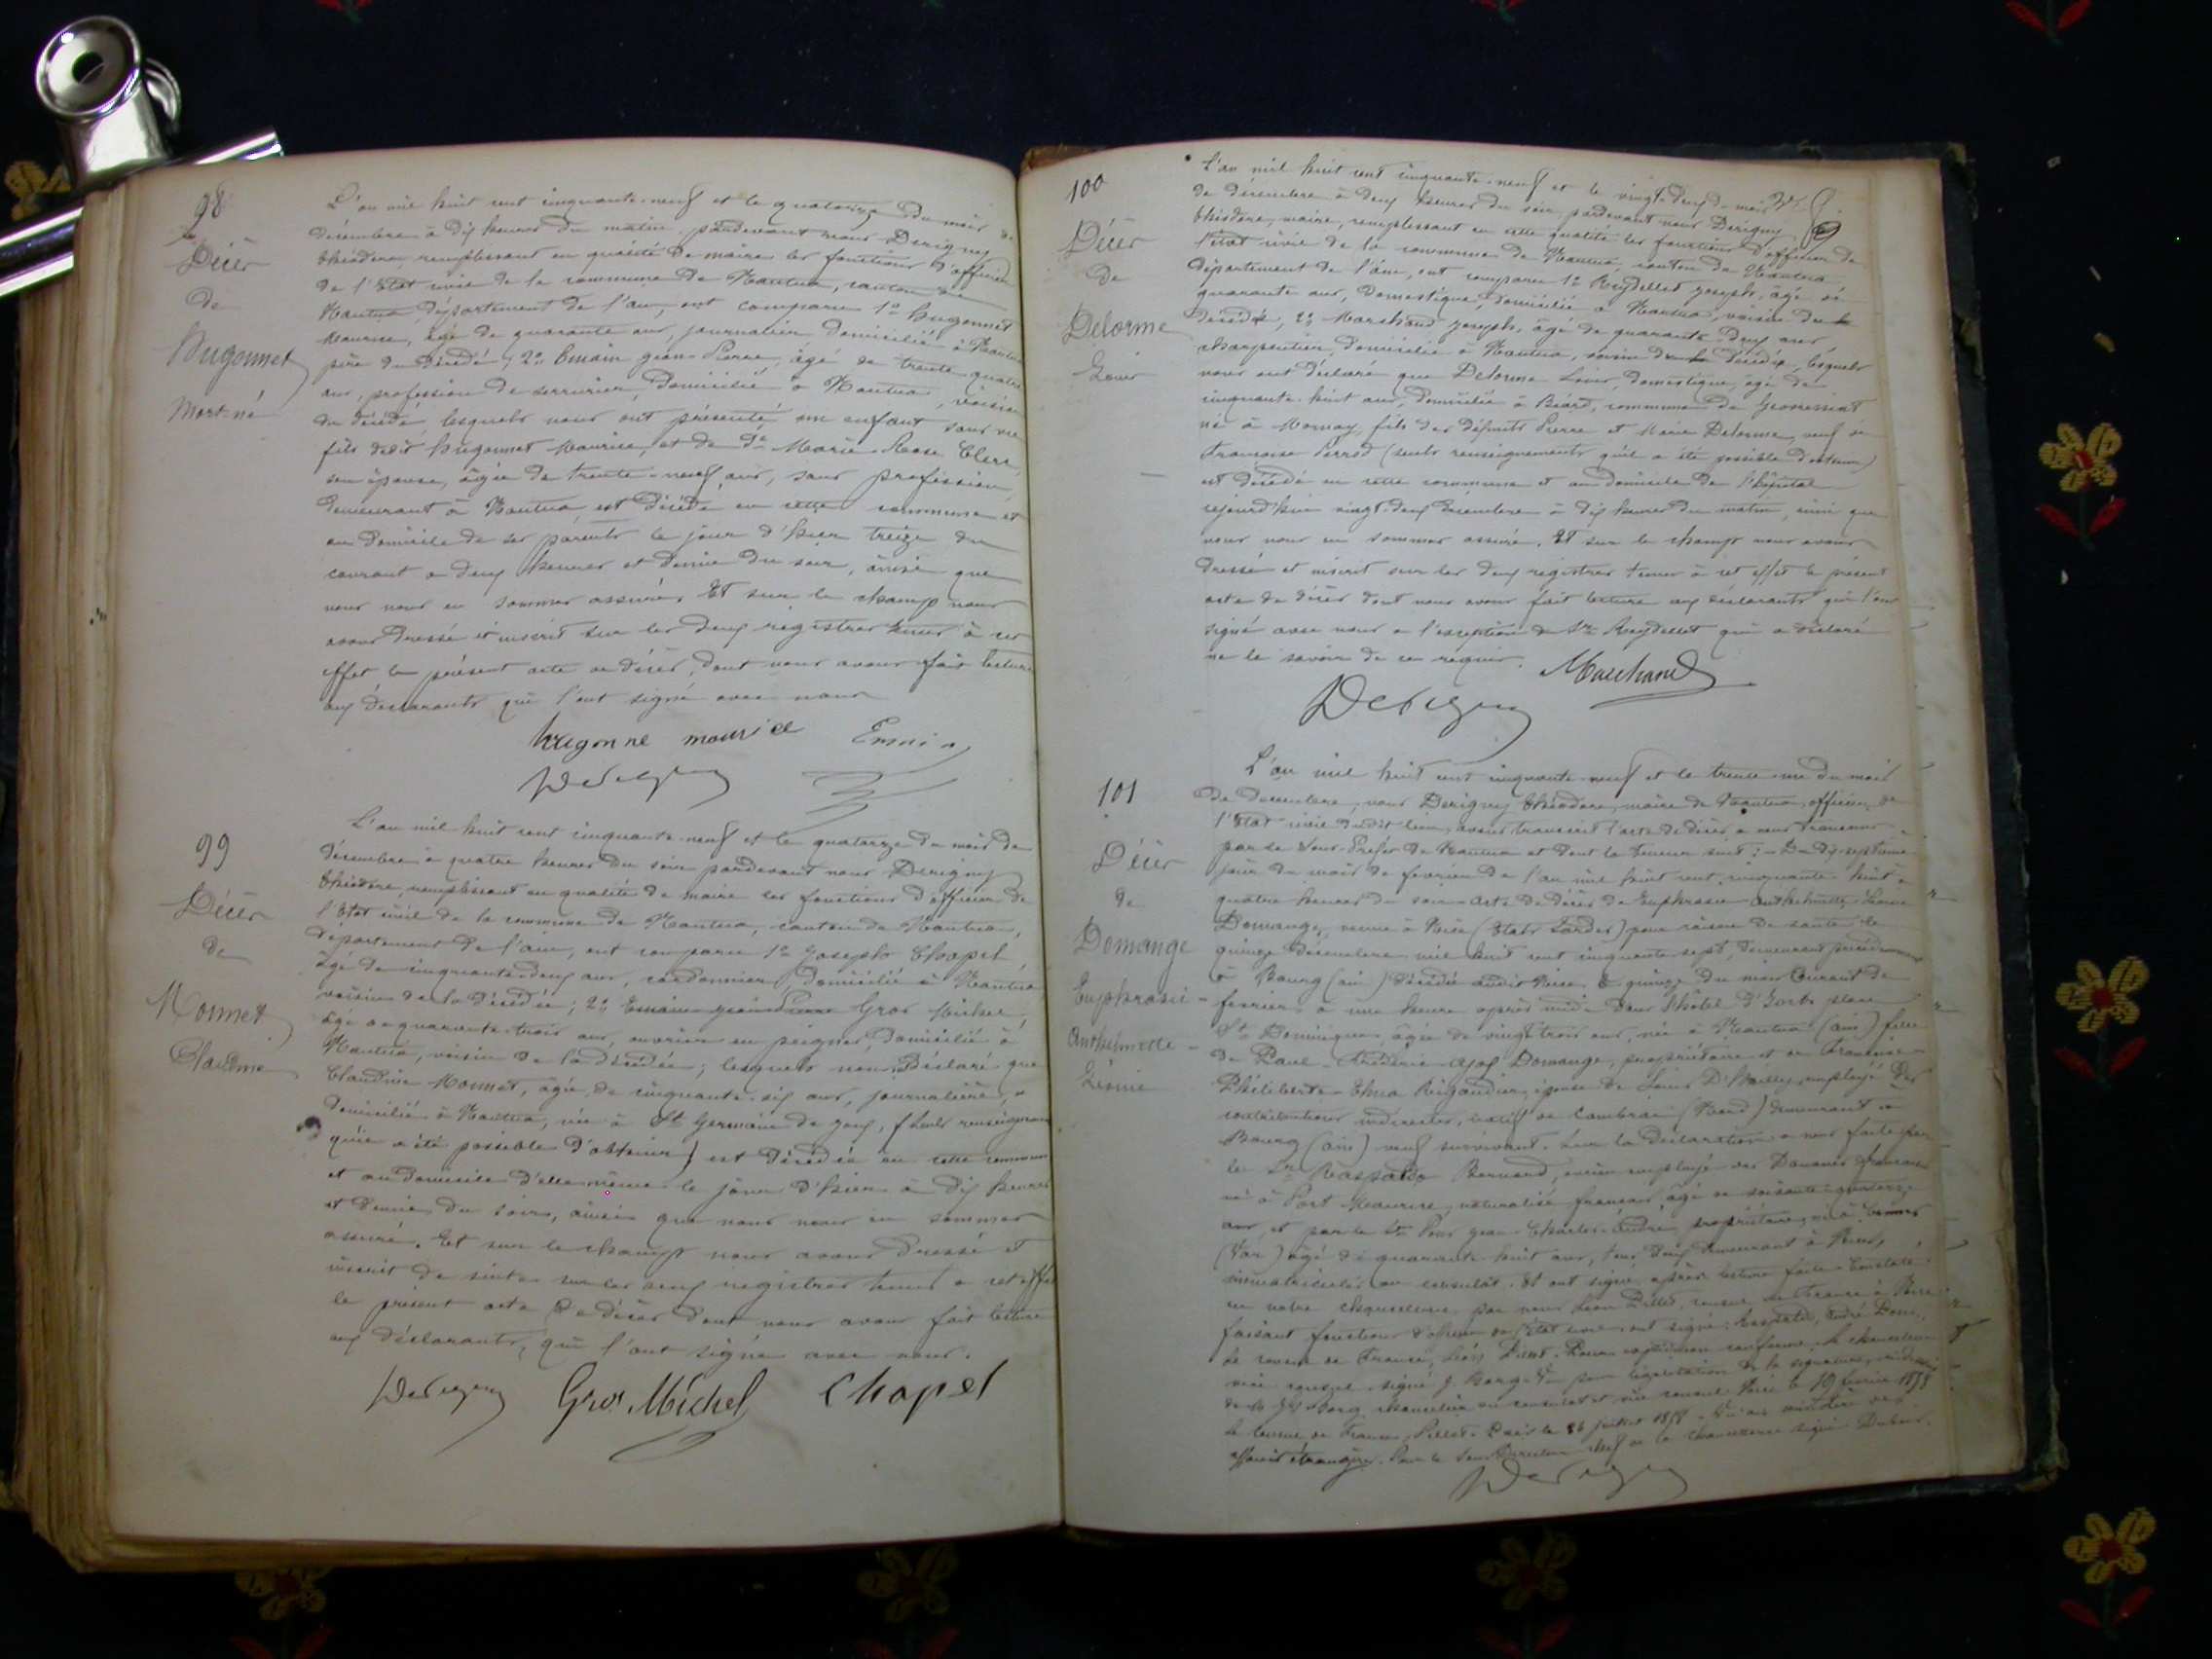 98
Décès
de
Hugonnet
Mort-né
L'an mil huit cent cinquante-neuf et le quatorze du mois de
décembre à dix heures du matin, pardevant nous Derigny
Théodore, remplissant en qualité de maire les fonctions d'officier
de l'Etat civil de la commune de Nantua, canton de
Nantua, département de l'ain, ont comparu 1º Hugonnet
Maurice, âgé de quarante ans, journalier, domicilié à Nantua
père du décédé, 2º Emain Jean-Pierre, âgé de trente quatre
ans, profession de serrurier, domicilié à Nantua, voisin
du décédé, lesquels nous ont présenté un enfant sans vie
fils dudit Hugonnet Maurice, et de De Marie Rose Clerc
son épouse, âgée de trente-neuf ans, sans profession,
demeurant à Nantua, est décédé en cette commune et
au domicile de ses parents le jour d'hier treize du
courant à deux heures et demie du soir, ainsi que
nous nous en sommes assuré. Et sur le champ nous
avons dressé et inscrit sur les deux registres tenus à cet
effet, le présent acte de décès, dont nous avons fait lecture
aux déclarants qui l'ont signé avec nous
hugonne maurice Emain
Derigny
99
Décès
de
Monnet
Claudine
L'an mil huit cent cinquante-neuf et le quatorze du mois de
décembre à quatre heures du soir pardevant nous Derigny
Théodore, remplissant en qualité de maire les fonctions d'officier de
l'Etat civil de la commune de Nantua, canton de Nantua,
département de l'ain, ont comparu 1º Joseph Chapel
âgé de cinquante-deux ans, cordonnier, domicilié à Nantua
voisin de la décédée; 2º Emain Jean Pierre Gros Michel,
âgé de quarante-trois ans, ouvrier en peignes, domicilié à
Nantua, voisin de la décédée; lesquels nous déclaré que
Claudine Monnet, âgée de cinquante-six ans, journalière,
domicilié à Nantua, née à St Germain de joux, (seuls renseignements
qu'il a été possible d'obtenir) est décédée en cette commune
et au domicile d'elle-même le jour d'hier à dix heures
et demie du soir, ainsi que nous nous en sommes
assuré. Et sur le champ nous avons dressé et
inscrit de suite sur les deux registres tenus à cet effet
le présent acte de décès dont nous avons fait lecture
aux déclarants, qui l'ont signé avec nous.
Derigny Gros Michel Chapel
100
Décès
de
Delorme
Louis
L'an mil huit cent cinquante-neuf et le vingt-deux du mois
de décembre à deux heures du soir, pardevant nous Derigny
Théodore, maire, remplissant en cette qualité les fonctions d'officier de
l'état civil de la commune de Nantua, canton de Nantua
département de l'ain, ont comparu 1º Reydellet Joseph, âgé de
quarante ans, domestique, domicilié à Nantua, voisin du
décédé, 2º Marchand Joseph, âgé de quarante-deux ans,
charpentier, domicilié à Nantua, voisin du décédé, lesquels
nous ont déclaré que Delorme Louis, domestique, âgé de
cinquante-huit ans, domicilié à Béard, commune de Geovreissiat
né à Mornay, fils des défunts Pierre et Marie Delorme, veuf de
Françoise Perrod (seuls renseignements qu'il a été possible d'obtenir)
est décédé en cette commune et au domicile de l'hôpital
cejourd'hui vingt-deux décembre à dix heures du matin, ainsi que
nous nous en sommes assuré. Et sur le champ nous avons
dressé et inscrit sur les deux registres tenus à cet effet le présent
acte de décès dont nous avons fait lecture aux déclarants qui l'ont
signé avec nous à l'exception de Sr Reydellet qui a déclaré
ne le savoir de ce requis.
Marchand
Derigny
101
Décès
de
Domange
Euphrasie
Anthelmette
Léonie
L'an mil huit cent cinquante-neuf et le trente-un du mois
de décembre, nous Derigny Théodore, maire de Nantua, officier de
l'Etat civil dudit lieu, avons transcrit l'acte de décès à nous transmis
par le Sous-Préfet de Nantua et dont la teneur suit: Le dix-septième
jour du mois de février de l'an mil huit cent cinquante-huit à
quatre heures du soir. Acte de décès de Euphrasie Anthelmette Léonie
Domange, venue à Nice (Etats Sardes) pour raison de santé le
quinze décembre mil huit cent cinquante-sept, demeurant précédemment
à Bourg (ain) décédée audit Nice le quinze du mois courant de
février à une heure après midi dans l'hôtel d'York place
St Dominique, âgée de vingt trois ans, née à Nantua (ain) fille
de Paul Frédéric Domange, propriétaire et de Françoise
Philiberte Rigaudier, épouse de Louis D'Hailly, employé des
contributions indirectes, natif de Cambrai (Nord) demeurant à
Bourg (ain) veuf survivant. Sur la déclaration à nous faite par
le Sr Raspaldo Bernard, ancien employé des Douanes
né à Port Maurice, naturalisé français, âgé de soixante-quatorze
ans, et par le Sr Jean-Charles-André, propriétaire, né à
(Var) âgé de quarante-huit ans, tous deux demeurant à Nice,
immatriculés au consulat. Et ont signé après lecture faite. Constaté
en notre chancellerie par nous Léon Pillet, consul de France à Nice
faisant fonctions d'officier de l'état civil, ont signé: Raspaldo,
Le consul de France, Léon Pillet. Pour expédition conforme, le chancelier
vice consul signé pour légalisation de la signature
chancelier du consulat et vice consul Nice le 19 février 1858
Le Consul de France, Pillet. Paris le juillet 1858. ministre des
affaires étrangères. Pour le Sous Directeur chef de la chancellerie signé: Dubois.
Derigny